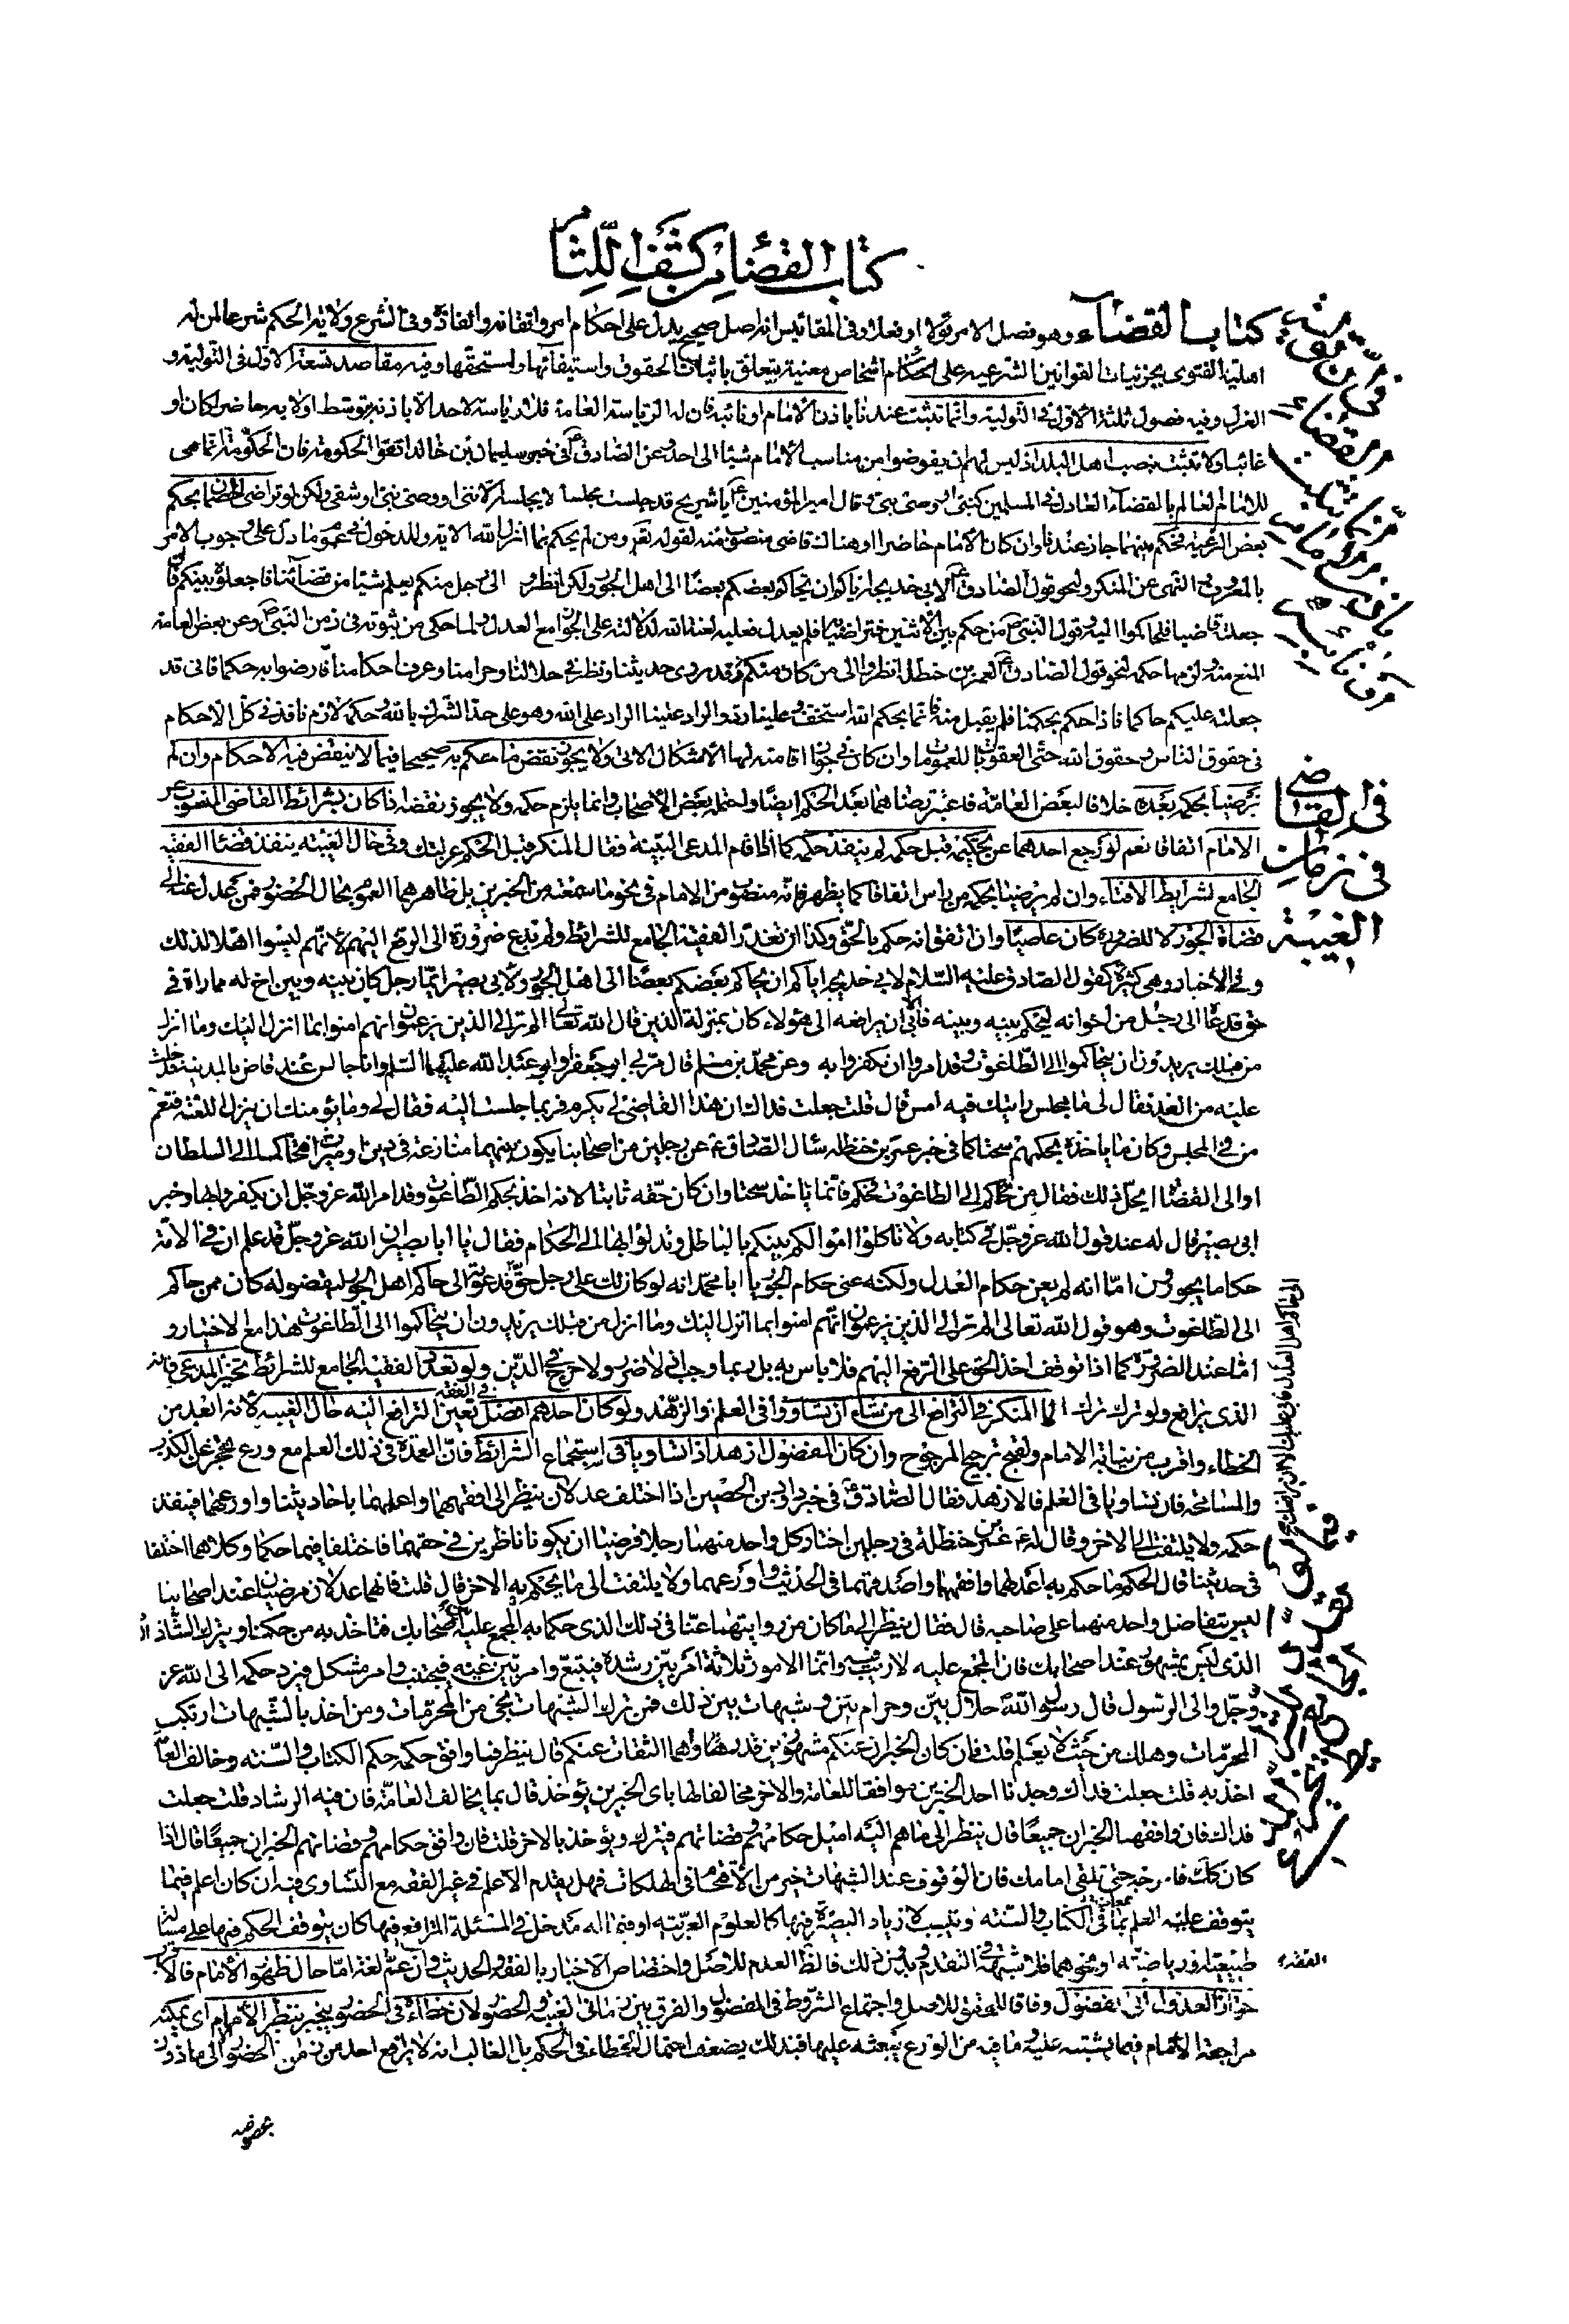 كتاب القضاء من كشف اللثام
كتاب القضاء وهو فصل الامر قولا او فعلا وفى المقائيس انه اصل صحيح يدل على احكام امر واتقانه وانفاذه وفى الشرع ولاية الحكم شرعا لمن له
اهلية الفتوى بجزئيات القوانين الشرعية على اشخاص معنية يتعلق باثبات الحقوق واستيفائها ولمستحقها وفيه مقاصد تسعة الاول فى التولية و
العزل وفيه فصول ثلثة الاول فى التولية وانما تثبت عندنا باذن الامام او نائبه فان له الرياسة العامة فلا رياسة لاحد الا باذنه بتوسط او لا به حاضرا كان او
غائبا ولا تثبت بنصب اهل البلد اذ ليس لهم ان يفوضوا من مناسب الامام شيئا الى احد وعن الصادق فى خبر سليمان بن خالد اتقوا الحكومة فان الحكومة انما هى
للامام العالم بالقضاء العادل فى المسلمين كنبى او وصى نبى وقال امير المؤمنين يا شريح قد جلست مجلسا لا يجلسه الا نبى او وصى نبى او شقى ولكن لو تراضى خصمان بحكم
بعض الرعية فحكم بينهما جاز عندنا وان كان الامام حاضرا او هناك قاضى منصوب منه لقوله تع ومن لم يحكم بما انزل الله الاية وللدخول فى عموم ما دل على وجوب الامر
بالمعروف والنهى عن المنكر ولنحو قول الصادق لابى خديجة اياكم ان يحاكم بعضكم بعضا الى اهل الجور ولكن انظروا الى رجل منكم يعلم شيئا من قضائنا فاجعلوه بينكم فانى
جعلته قاضيا فتحاكموا اليه وقول النبى ص من حكم بين الاثنين فتراضيا فلم يعدل فعليه لعنة الله لدلالته على الجواز مع العدل ولما حكى من ثبوته فى زمن النبى ص وعن بعض العامة
المنع منه ولزمهما حكمه لنحو قول الصادق لعمر بن حنظلة انظروا الى من كان منكم قد روى حديثنا ونظر فى حلالنا وحرامنا وعرف احكامنا فارضوا به حكما فانى قد
جعلته عليكم حاكما فاذا حكم بحكمنا فلم يقبل منه فانما بحكم الله استخف وعلينا رد والراد علينا الراد على الله وهو على حد الشرك بالله وحكمه لازم نافذ فى كل الاحكام
فى حقوق الناس وحقوق الله حتى العقوبات للعموم وان كان فى جواز اقامته لها الاشكال الاتى ولا يجوز نقض ما حكم به صحيحا فيما لا ينقض فيه الاحكام وان لم
يرضيا بحكمه بعده خلافا لبعض العامة فاعتبر رضاهما بعد الحكم ايضا واحتمله بعض الاصحاب وانما يلزم حكمه ولا يجوز نقضه اذا كان بشرائط القاضى المنصوب عن
الامام اتفاقا نعم لو رجع احدهما عن تحكيمه قبل حكمه لم ينفذ حكمه كما اذا اقام المدعى البينة فقال المنكر قبل الحكم عزلتك وفى حال الغيبة ينفذ قضاء الفقيه
الجامع لشرايط الافتاء وان لم يرضيا بحكمه من راس اتفاقا كما يظهر فانه منصوب من الامام فى نحو ما سمعته من الخبرين بل ظاهرهما العموم لحال الحضور فمن عدل عنه الى
قضاة الجور لا للضرورة كان عاصيا وان اتفق انه حكم بالحق وكذا ان تعذر الفقيه الجامع للشرائط ولم تدع ضرورة الى الرفع اليهم لانهم ليسوا اهلا لذلك
وفى الاخبار وهى كثيرة كقول الصادق عليه السلام لابى خديجة اياكم ان يحاكم بعضكم بعضا الى اهل الجور ولابى بصير ايما رجل كان بينه وبين اخ له مماراة فى
حق فدعاه الى رجل من اخوانه ليحكم بينه وبينه فابى الا ان يرافعه الى هؤلاء كان بمنزلة الذين قال الله تعالى الم تر الى الذين يزعمون انهم امنوا بما انزل اليك وما انزل
من قبلك يريدون ان يتحاكموا الى الطاغوت وقد امروا ان يكفروا به وعن محمد بن مسلم قال مر بى ابو جعفر او ابو عبد الله عليهما السلم وانا جالس عند قاض بالمدينة فدخلت
عليه من الغد فقال لى ما مجلس رايتك فيه امس قال قلت جعلت فداك ان هذا القاضى لى مكرم فربما جلست اليه فقال لى وما يؤمنك ان ينزل اللعنة فتعم
من فى المجلس وكان ما ياخذه بحكمهم سحتا كما فى خبر عمر بن حنظلة سئال الصادق ع عن رجلين من اصحابنا يكون بينهما منازعة فى دين او ميراث فتحاكما الى السلطان
او الى القضاة ايحل ذلك فقال من تحاكم الى الطاغوت فحكم فانما ياخذ سحتا وان كان حقه ثابتا لانه اخذ بحكم الطاغوت وقد امر الله عز وجل ان يكفر بها وخبر
ابى بصير قال له عند قول الله عز وجل فى كتابه ولا تاكلوا اموالكم بينكم بالباطل وتدلوا بها الى الحكام فقال يا ابا بصير ان الله عز وجل قد علم ان فى الامة
حكاما يجورون اما انه لم يعن حكام العدل ولكنه عنى حكام الجور يا ابا محمد انه لو كان لك على رجل حق فدعوته الى حاكم اهل الجور ليقضو له كان ممن حاكم
الى الطاغوت وهو قول الله تعالى الم تر الى الذين يزعمون انهم امنوا بما انزل اليك وما انزل من قبلك يريدون ان يتحاكموا الى الطاغوت هذا مع الاختيار و
اما عند الضرورة كما اذا توقف اخذ الحق على الرفع اليهم فلا باس به بل ربما وجب اذ لا ضرر ولا حرج فى الدين ولو تعدد الفقيه الجامع للشرائط تخير المدعى فانه
الذى يرافع ولو ترك ترك لا المنكر فى الترافع الى من شاء ان تساووا فى العلم والزهد ولو كان احدهم افضل فى الفقه تعين الترافع اليه حال الغيبة لانه ابعد من
الخطاء واقرب من نيابة الامام ولقبح ترجيح المرجوح وان كان المفضول ازهد اذا تساويا فى استجماع الشرائط فان العمدة فى ذلك العلم مع ورع يحجز عن الكذب
والمسامحة فان تساويا فى العلم فالازهد فقال الصادق ع فى خبر داود بن الحصين اذا اختلف عدلان ينظر الى افقههما واعلمهما باحاديثنا واورعهما فينفذ
حكمه ولا يلتفت الى الاخر وقال له ع عمر بن حنظلة فى رجلين اختار كل واحد منهما رجلا فرضيا ان يكونا ناظرين فى حقهما فاختلفا فيما حكما وكلاهما اختلفا
فى حديثنا قال الحكم ما حكم به اعدلهما وافقههما واصدقهما فى الحديث واورعهما ولا يلتفت الى ما يحكم به الاخر قال قلت فانهما عدلان مرضيان عند اصحابنا
ليس يتفاضل واحد منهما على صاحبه قال فقال ينظر الى ما كان من روايتهما عنا فى ذلك الذى حكما به المجمع عليه اصحابك فتاخذ به من حكمنا ويترك الشاذ
الذى ليس بمشهور عند اصحابك فان المجمع عليه لا ريب فيه وانما الامور ثلاثة امر بين رشده فيتبع وامر بين غيه فيجتنب وامر مشكل فيرد حكمه الى الله عز
وجل والى الرسول قال رسول الله حلال بين وحرام بين وشبهات بين ذلك فمن ترك الشبهات نجى من المحرمات ومن اخذ بالشبهات ارتكب
المحرمات وهلك من حيث لا يعلم قلت فان كان الخبران عنكم مشهورين قد رواهما الثقات عنكم قال ينظر فما وافق حكمه حكم الكتاب والسنة وخالف العامة
اخذ به قلت جعلت فداك وجدنا احد الخبرين موافقا للعامة والاخر مخالفا لها باى الخبرين يؤخذ قال بما يخالف العامة فان فيه الرشاد قلت جعلت
فداك فان وافقهما الخبران جميعا قال ينظر الى ما هم اليه اميل حكامهم وقضاتهم فيترك ويؤخذ بالاخر قلت فان وافق حكامهم وقضاتهم الخبران جميعا قال اذا
كان كك فارجه حتى تلقى امامك فان الوقوف عند الشبهات خير من الاقتحام فى الهلكات فهل يقدم الاعلم فى غير الفقه مع التساوى فيه ان كان اعلم فيما
يتوقف عليه العلم بمعانى الكتاب والسنة وتيسر لازياد البصيرة فيها كالعلوم العربية او فيما له مدخل فى المسئلة المترافع فيها كان يتوقف الحكم فيها على مسئلة
طبيعية او رياضية او نحوهما فلا شبهة فى التقدم وبدون ذلك فالظ العدم للاصل واختصاص الاخبار بالفقه والحديث وان عم لغة اما حال ظهور الامام فالاقرب
جواز العدول الى المفضول وفاقا للمحقق للاصل واجتماع الشروط فى المفضول والفرق بين زمانى الغيبة والحضور لان خطاءه فى الحضور ينجبر بنظر الامام اى يمكنه
مراجعة الامام فيما يشتبه عليه وما فيه من الورع يبعثه عليها فبذلك يضعف احتمال الخطاء فى الحكم بل الغالب انه لا يرافع احد من زمن الحضور الى ماذون
فى القاضى
فى زمان
الغيبة
الفقه